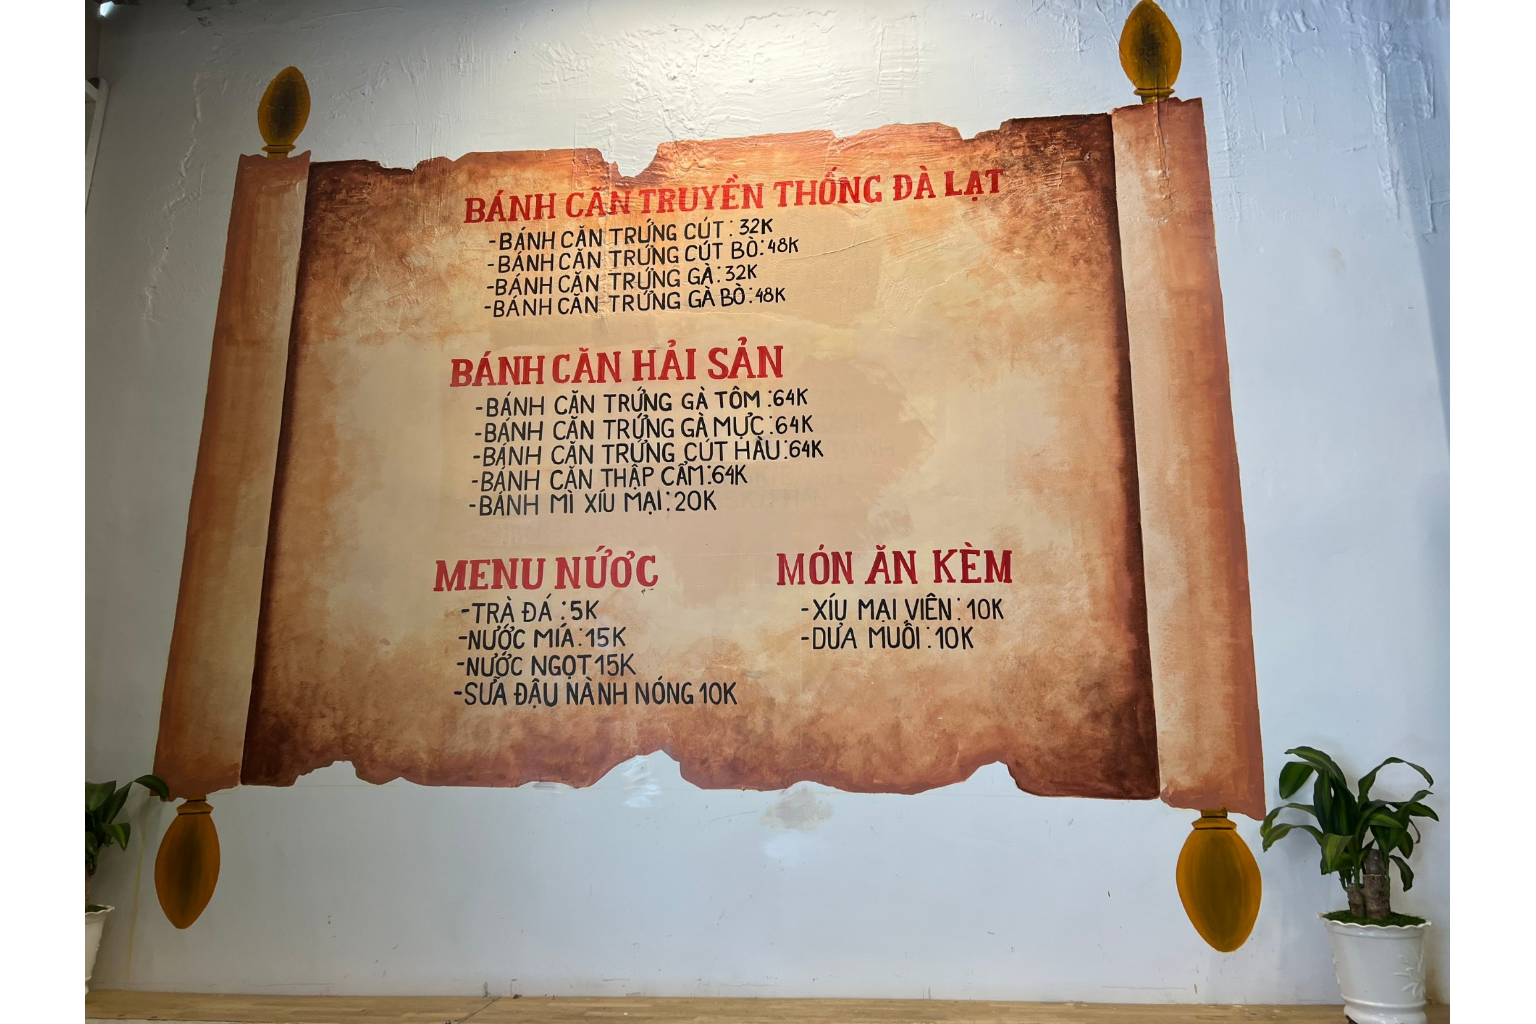 BÁNH CĂN TRUYỀN THỐNG ĐÀ LẠT
-BÁNH CĂN TRỨNG CÚT: 32K
-BÁNH CĂN TRỨNG CÚT BÒ: 48K
-BÁNH CĂN TRỨNG GÀ: 32K
-BÁNH CĂN TRỨNG GÀ BÒ: 48K
BÁNH CĂN HẢI SẢN
-BÁNH CĂN TRỨNG GÀ TÔM: 64K
-BÁNH CĂN TRỨNG GÀ MỰC: 64K
-BÁNH CĂN TRỨNG CÚT HÀU: 64K
-BÁNH CĂN THẬP CẨM: 64K
-BÁNH MÌ XÍU MẠI: 20K
MENU NỨƠC
-TRÀ ĐÁ: 5K
-NƯỚC MIÁ: 15K
-NƯỚC NGỌT 15K
-SƯÃ ĐẬU NÀNH NÓNG 10K
MÓN ĂN KÈM
-XÍU MẠI VIÊN: 10K
-DƯA MUỐI: 10K